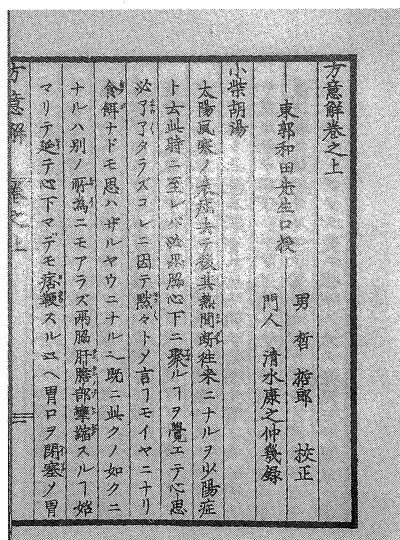 方意解卷之上
東郭和田先生口授
男 哲 哲郎 校正
門人 清水康之仲 錄
小柴胡湯
太陽風寒ノ表症去テ後其熱間断往来ニナルヲ少陽症
ト云此時ニ至レバ必両脇心下ニ聚ルヿヲ覺エテ心思
必了了タラズコレニ因テ黙々トメ言フモイヤニナリ
食餌ナドモ思ハザルヤウニナル也既ニ此クノ如クニ
ナルハ別ノ所為ニモアラズ両脇肝膽部攣縮スルヿ始
マリテ延テ心下マデモ痞鞕スルユヘ胃口ヲ閉塞ノ胃
方意解 卷之上